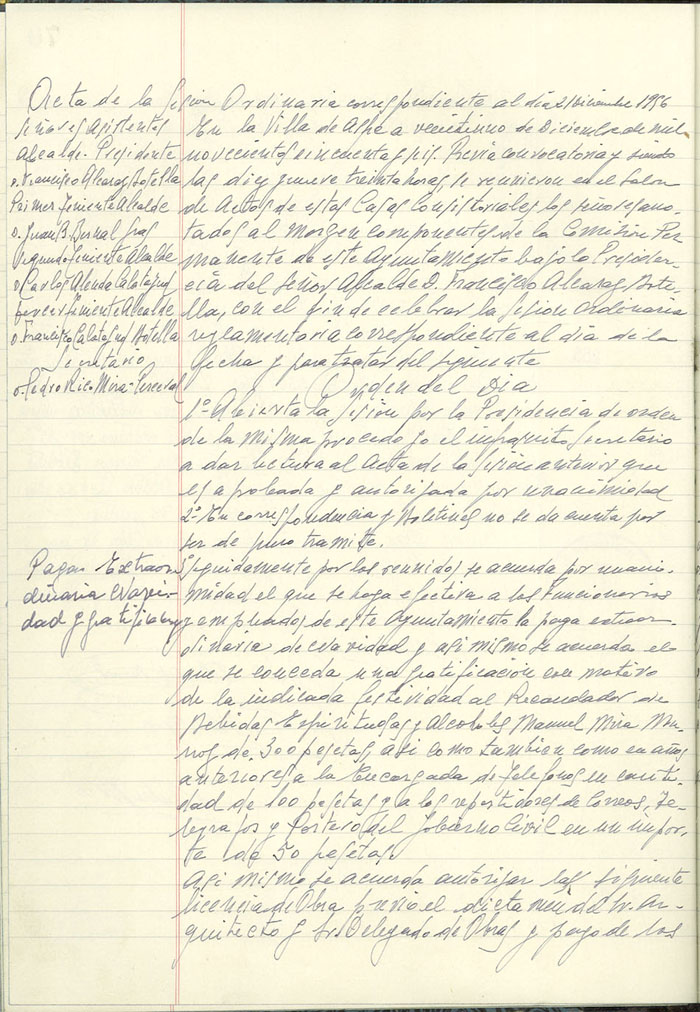 Acta de la Sesion Ordinaria correspondiente al dia 21 Diciembre 1956
Señores Asistentes
Alcalde-Presidente
D. Francisco Alcaraz Botella
Primer Teniente Alcalde
D. Juan B. Bernal
Segundo Teniente Alcalde
D. Carlos Alenda Calatayud
Tercer Teniente Alcalde
D. Francisco Calatayud Botella
Secretario
D. Pedro Rico Mira-Perceval
En la Villa de Aspe a veintiuno de Diciembre de mil
novecientos cincuenta y seis. Previa convocatoria y siendo
las diez y nueve treinta horas, se reunieron en el Salon
de Actos de estas Casas Consistoriales los señores ano-
tados al margen componentes de la Comision Per
manente de este Ayuntamiento bajo la Presiden-
cia del Señor Alcalde D. Francisco Alcaraz Bote-
lla, con el fin de celebrar la sesion ordinaria
reglamentaria correspondiente al dia de la
fecha y para tratar del siguiente
Orden del Dia
1º Abierta la sesion por la Presidencia de orden
de la misma procedo yo el infrascrito Secretario
a dar lectura al Acta de la sesion anterior que
es aprobada y autorizada por unanimidad
2º En correspondencia y Boletines no se da cuenta por
ser de puro tramite.
Paga Extraor
dinaria Navi-
dad y gratificacion
Seguidamente por los reunidos se acuerda por unani-
midad el que se haga efectiva a los funcionarios
y empleados de este Ayuntamiento la paga extraor-
dinaria de Navidad y asi mismo se acuerda el
que se conceda una gratificación con motivo
de la indicada festividad al Recaudador de
Bebidas Espirituosas y Alcoholes Manuel Mira
de 300 pesetas, asi como tambien como en años
anteriores a la Encargada de Telefonos en canti-
dad de 100 pesetas y a los repartidores de Correos, Te-
legrafos y Portero del Gobierno Civil en un impor-
te de 50 pesetas.
Asi mismo se acuerda autorizar las siguiente
licencia de Obra previo el dictamen del Sr. Ar-
quitecto y Sr. Delegado de Obras y pago de los